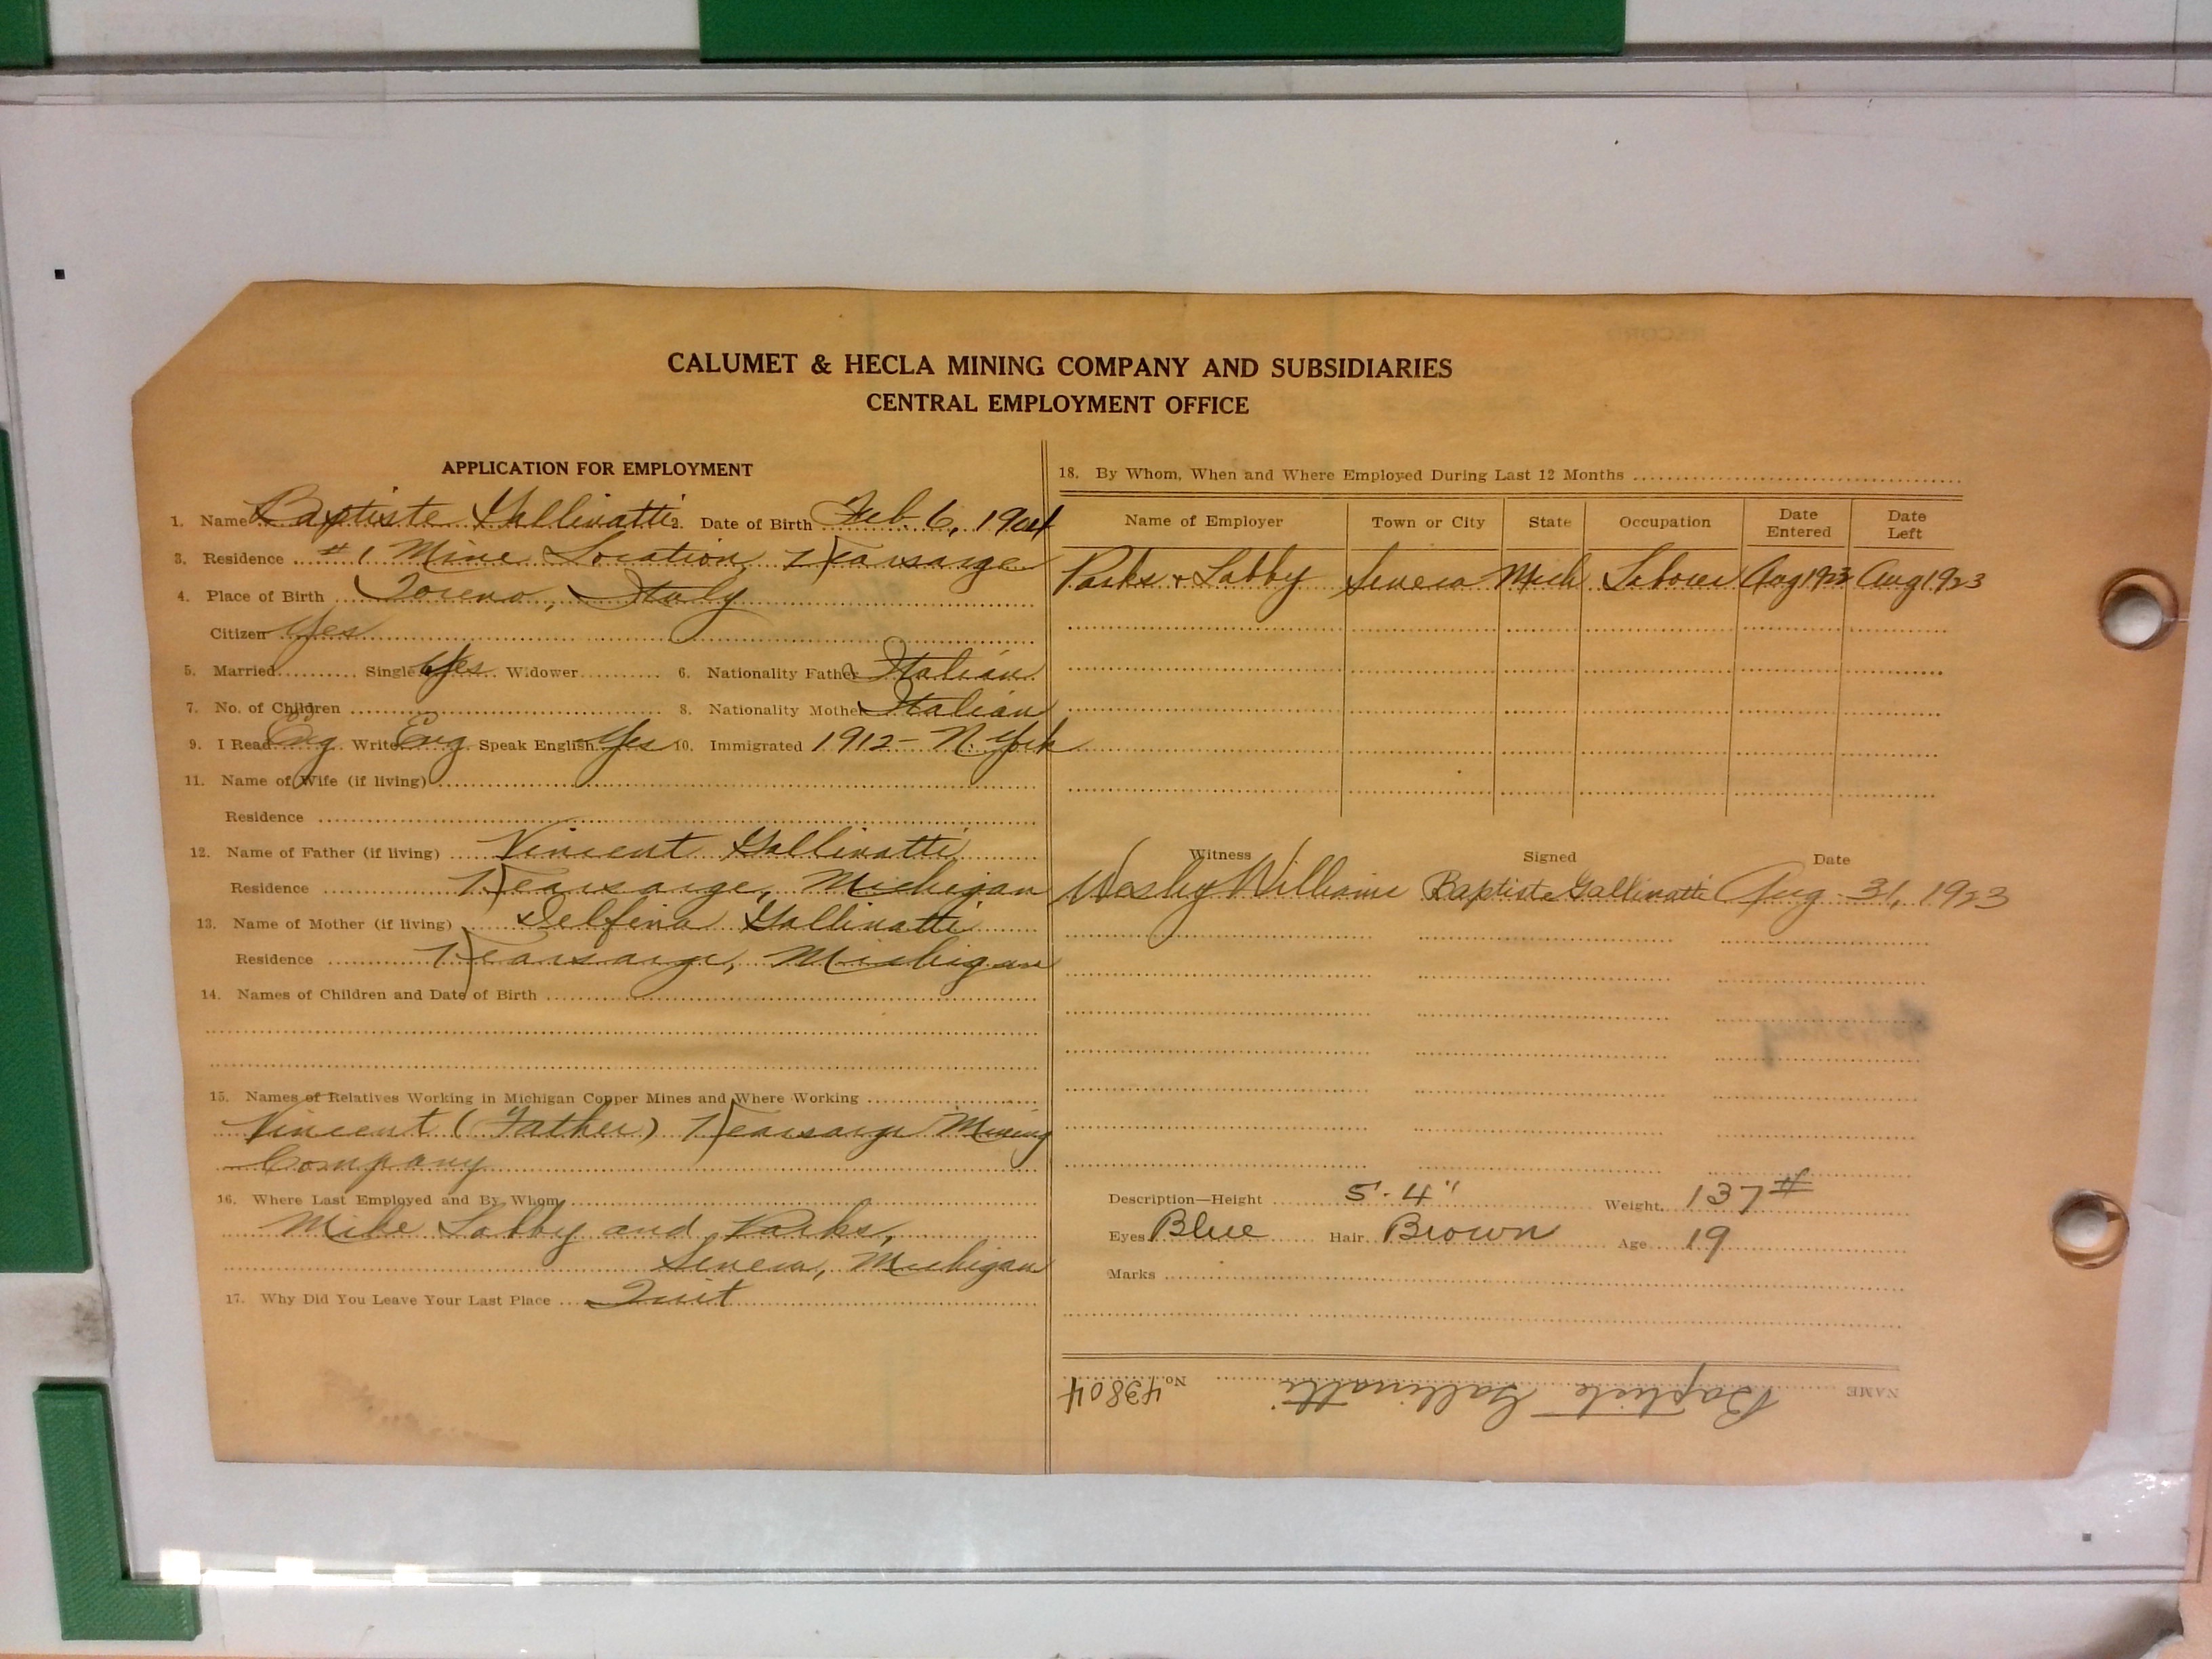 CALUMET & HECLA MINING COMPANY AND SUBSIDIARIES
CENTRAL EMPLOYMENT OFFICE
APPLICATION FOR EMPLOYMENT
1. Name Baptiste Gallinatti 2. Date of Birth Feb. 6, 1904
3. Residence #1 Mine Location, Kearsarge
4. Place of Birth Toreno, Italy
Citizen Yes
5. Married Single Yes Widower 6. Nationality Father Italian
7. No. of Children 8. Nationality Mother Italian
9. I Read Eng. Write Eng. Speak English Yes 10. Immigrated 1912 - N. York
11. Name of Wife (if living)
Residence
12. Name of Father (if living) Vincent Gallinatti
Residence Kearsarge, Michigan
13. Name of Mother (if living) Delfina Gallinatti
Residence Kearsarge, Michigan
14. Names of Children and Date of Birth
15. Names of Relatives Working in Michigan Copper Mines and Where Working
Vincent (Father) Kearsarge Mining
Company
16. Where Last Employed and By Whom
Mike Labby and Parks,
Seneca, Michigan
17. Why Did You Leave Your Last Place Quit
18. By Whom, When and Where Employed During Last 12 Months
Name of Employer Town or City State Occupation Date Entered Date Left
Parks & Labby Seneca Mich Laborer Aug 1923 Aug 1923
Witness Signed Date
Wesley Williams Baptiste Gallinatti Aug - 31, 1923
Description—Height 5'. 4" Weight 137#
Eyes Blue Hair Brown Age 19
Marks
NAME Baptiste Gallinatti No. 43804